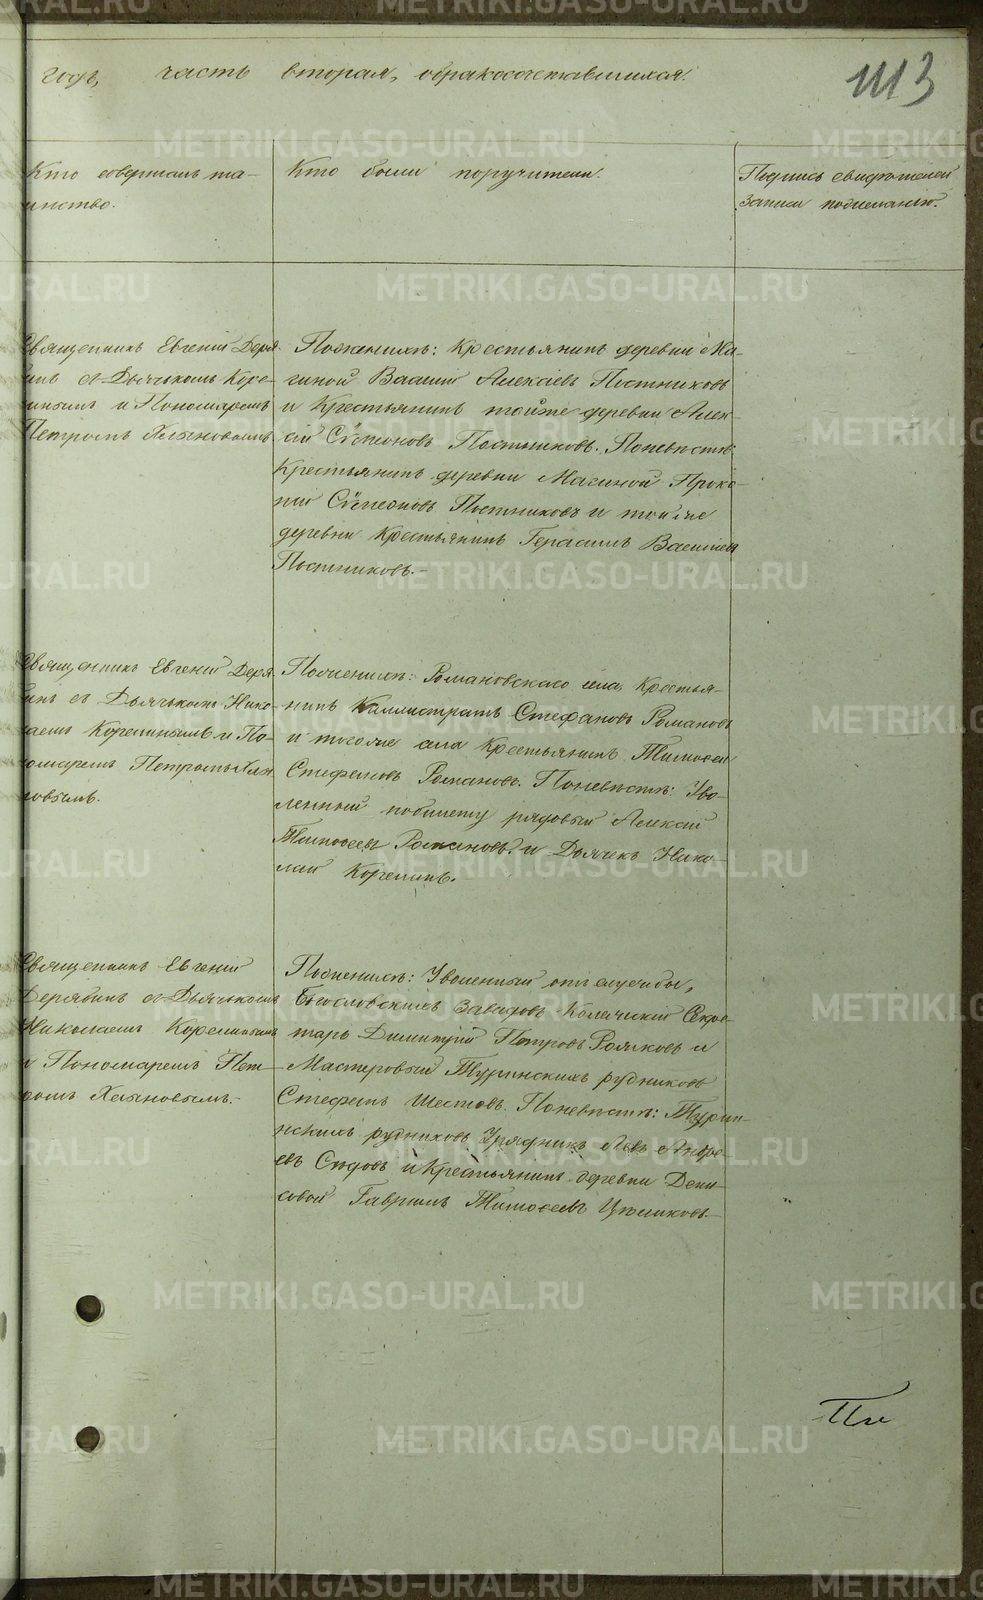 годъ, часть вторая, о бракосочетавшихся.
113
Кто совершалъ та-
инство.
Кто были поручители.
Подпись свидѣтелей
записи по желанію.
Священникъ Евгеній Деря-
бинъ съ Дьячькомъ Коре-
линымъ и Пономаремъ
Петромъ Хлыновымъ.
По женихѣ: Крестьянинъ деревни Ма-
гиной Василій Алексѣевъ Постниковъ
и Крестьянинъ той же деревни Алек-
сѣй Сѵмеоновъ Постниковъ. По невѣстѣ:
Крестьянинъ деревни Магиной Проко-
пій Сѵмеоновъ Постниковъ и той же
деревни Крестьянинъ Герасимъ Васильевъ
Постниковъ.-
Священникъ Евгеній Деря-
бинъ съ Дьячькомъ Нико-
лаемъ Корелинымъ и По-
номаремъ Петромъ Хлы-
новымъ.
По женихѣ: Романовскаго села, Крестья-
нинъ Каллистратъ Стефановъ Романовъ
и того же села Крестьянинъ Тимофей
Стефановъ Романовъ. По невѣстѣ: Уво-
ленный по билету рядовый Алексѣй
Тимофеевъ Романовъ и Дьячекъ Нико-
лай Корелинъ.
Священникъ Евгеній
Дерябинъ съ Дьячькомъ
Николаемъ Корелинымъ
и Пономаремъ Пет-
ромъ Хлыновымъ.-
По женихѣ: Уволенный отъ службы,
Богословскихъ Заводовъ Колежскій Секре-
тарь Димитрій Петровъ и
Мастеровый Турьинскихъ рудниковъ
Стефанъ Шестовъ. По невѣстѣ: Турьин-
скихъ рудниковъ Урядникъ Левъ Андре-
евъ Сѣдовъ и Крестьянинъ деревни Дени-
совой Гавріилъ Тимофеевъ
METRIKI.GASO-URAL.RU